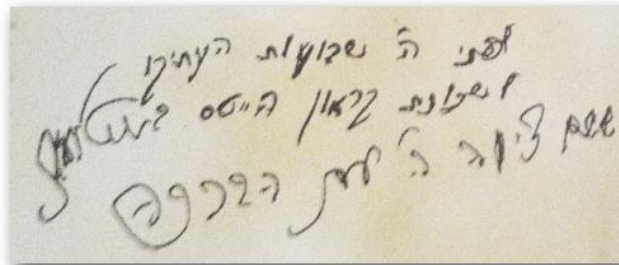 לפני ה' שבועות העתיקו
לשכונת קראון הייטס ברוקלין
ששם ציוה ה' את הברכה